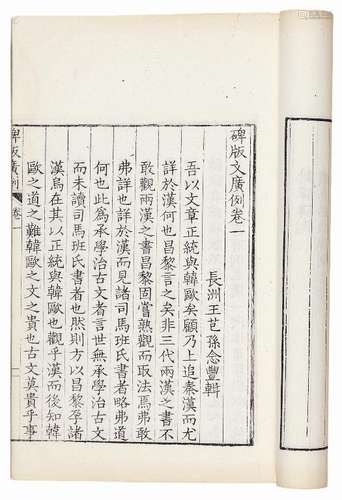 碑版文廣例卷一
長洲王芑孫念豐輯
吾以文章正統與韓歐矣顧乃上追秦漢而尤
詳於漢何也昌黎言之矣非三代兩漢之書不
敢觀兩漢之書昌黎固嘗熟觀而取法焉弗敢
弗詳也詳於漢而見諸司馬班氏書者略弗道
何也此爲承學治古文者言世無承學治古文
而未讀司馬班氏書者也然則方以昌黎孕諸
漢烏在其以正統與韓歐也觀乎漢而後知韓
歐之道之難韓歐之文之貴也古文莫貴乎事
碑版廣例 卷一